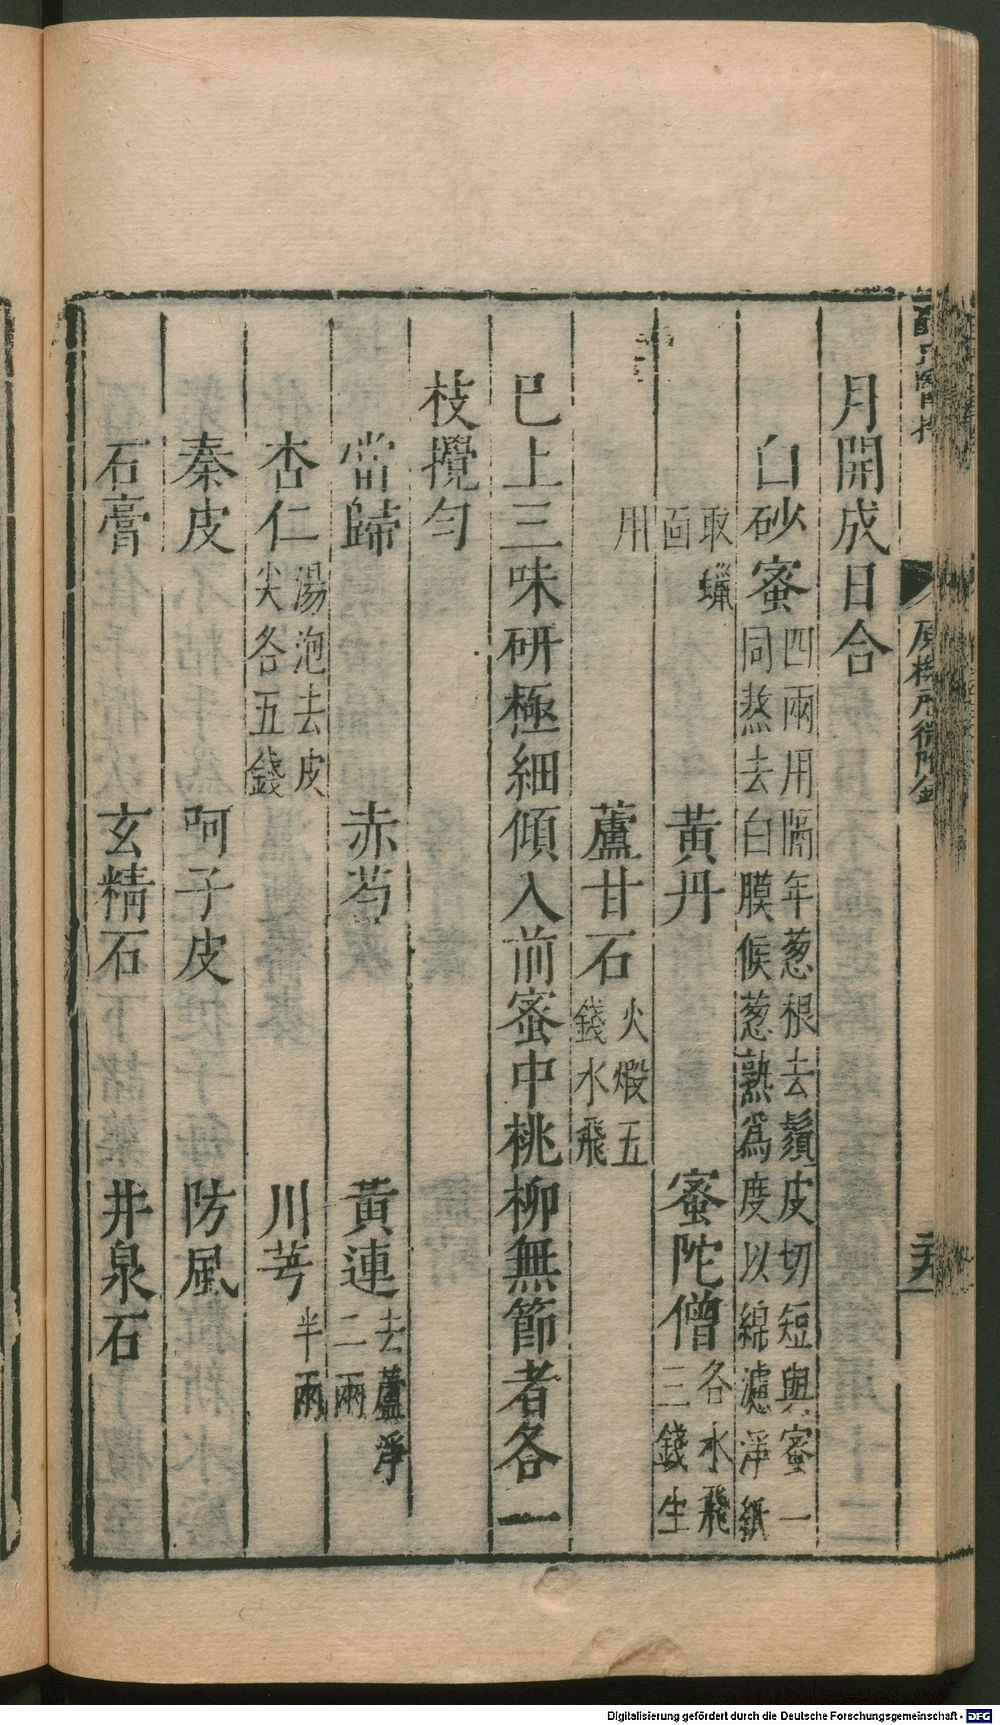 月開成日合
白砂蜜四兩用隔年葱根去鬚皮切短與蜜一同熬去白膜候葱熟爲度以綿濾淨紙
取蠟面 黃丹 蜜陀僧各水飛三錢生
用 蘆甘石火煅五錢水飛
巳上三味研極細傾入前蜜中桃柳無節者各一
枝攪勻
當歸 赤芍 黃連去蘆淨二兩
杏仁湯泡去皮尖各五錢 川芎半兩
秦皮 呵子皮 防風
石膏 玄精石 井泉石
原機啓微附錄
Digitalisierung gefördert durch die Deutsche Forschungsgemeinschaft - DFG